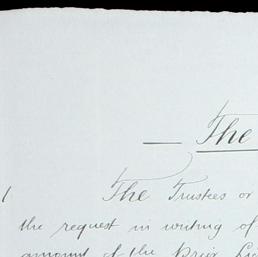 — The
1 The Trustees or
the request in writing of
amount of the Prior Lie